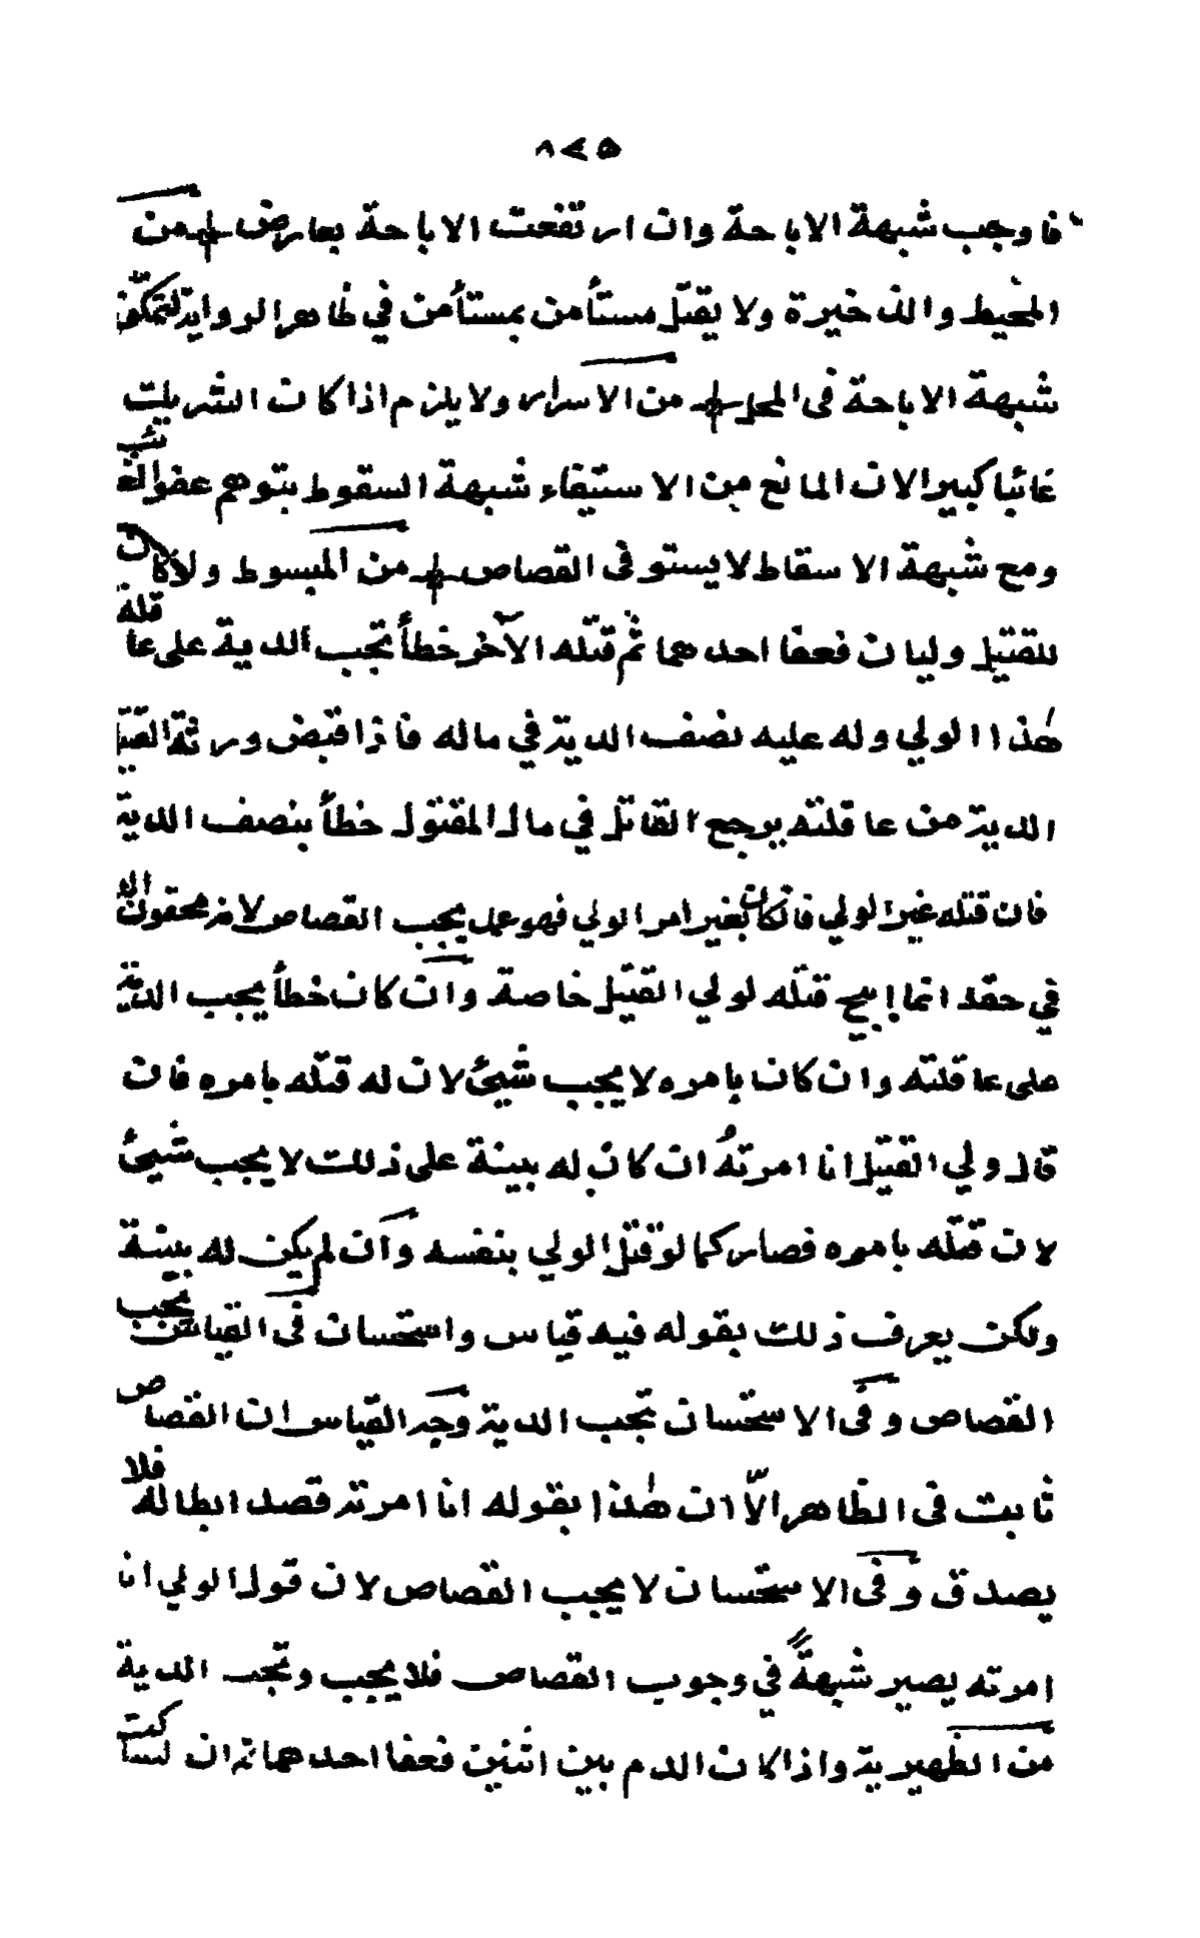 ٨٢٥
فاوجب شبهة الاباحة وان ارتفعت الاباحة بعارض من
المحيط والذخيرة ولا يقتل مستأمن بمستأمن في ظاهر الرواية لتمكّن
شبهة الاباحة فى المحل من الاسرار ولا يلزم اذا كان الشريك
غائبا كبيرا لان المانع من الاستيفاء شبهة السقوط بتوهم عفو الغائب
ومع شبهة الاسقاط لا يستوفى القصاص من المبسوط ولو كان
للقتيل وليان فعفا احدهما ثم قتله الآخر خطأ تجب الدية على عاقلة
هٰذا الولي وله عليه نصف الدية في ماله فاذا قبض ورثة القتيل
الدية من عاقلته يرجع القاتل في مال المقتول خطأ بنصف الدية
فان قتله غير الولي فان كان بغير امر الولي فهو عمل يجب القصاص لانه محقون الدم
في حقه انما ابيح قتله لولي القتيل خاصة وان كان خطأ يجب الدية
على عاقلته وان كان بامره لا يجب شيئ لان له قتله بامره فان
قال ولي القتيل انا امرتهُ ان كان له بينة على ذلك لا يجب شيئ
لان قتله بامره فصار كما لو قتل الولي بنفسه وان لم يكن له بينة
ولكن يعرف ذلك بقوله فيه قياس واستحسان فى القياس يجب
القصاص وفى الاستحسان تجب الدية وجه القياس ان القصاص
ثابت فى الظاهر الّا ان هٰذا بقوله انا امرته قصد ابطاله فلا
يصدق وفى الاستحسان لا يجب القصاص لان قول الولي انا
امرته يصير شبهةً في وجوب القصاص فلا يجب وتجب الدية
من الظهيرية واذا كان الدم بين اثنين فعفا احدهما ان